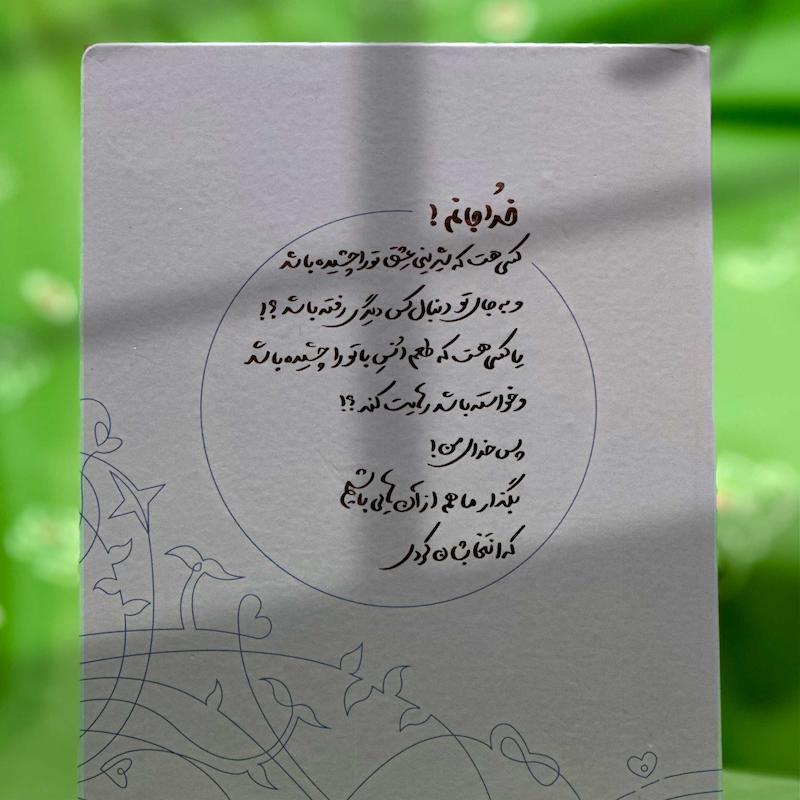 خُدا جانم !
کسی هست که شیرینی عِشق تو را چشیده باشد
و به جای تو دنبال کس دیگری رفته باشد ؟!
یا کسی هست که طعم اُنسِ با تو را چشیده باشد
و خواسته باشد رهایت کند ؟!
پس خدای من !
بگذار ما هم از آن هایی باشیم
که انتخابشان کردی